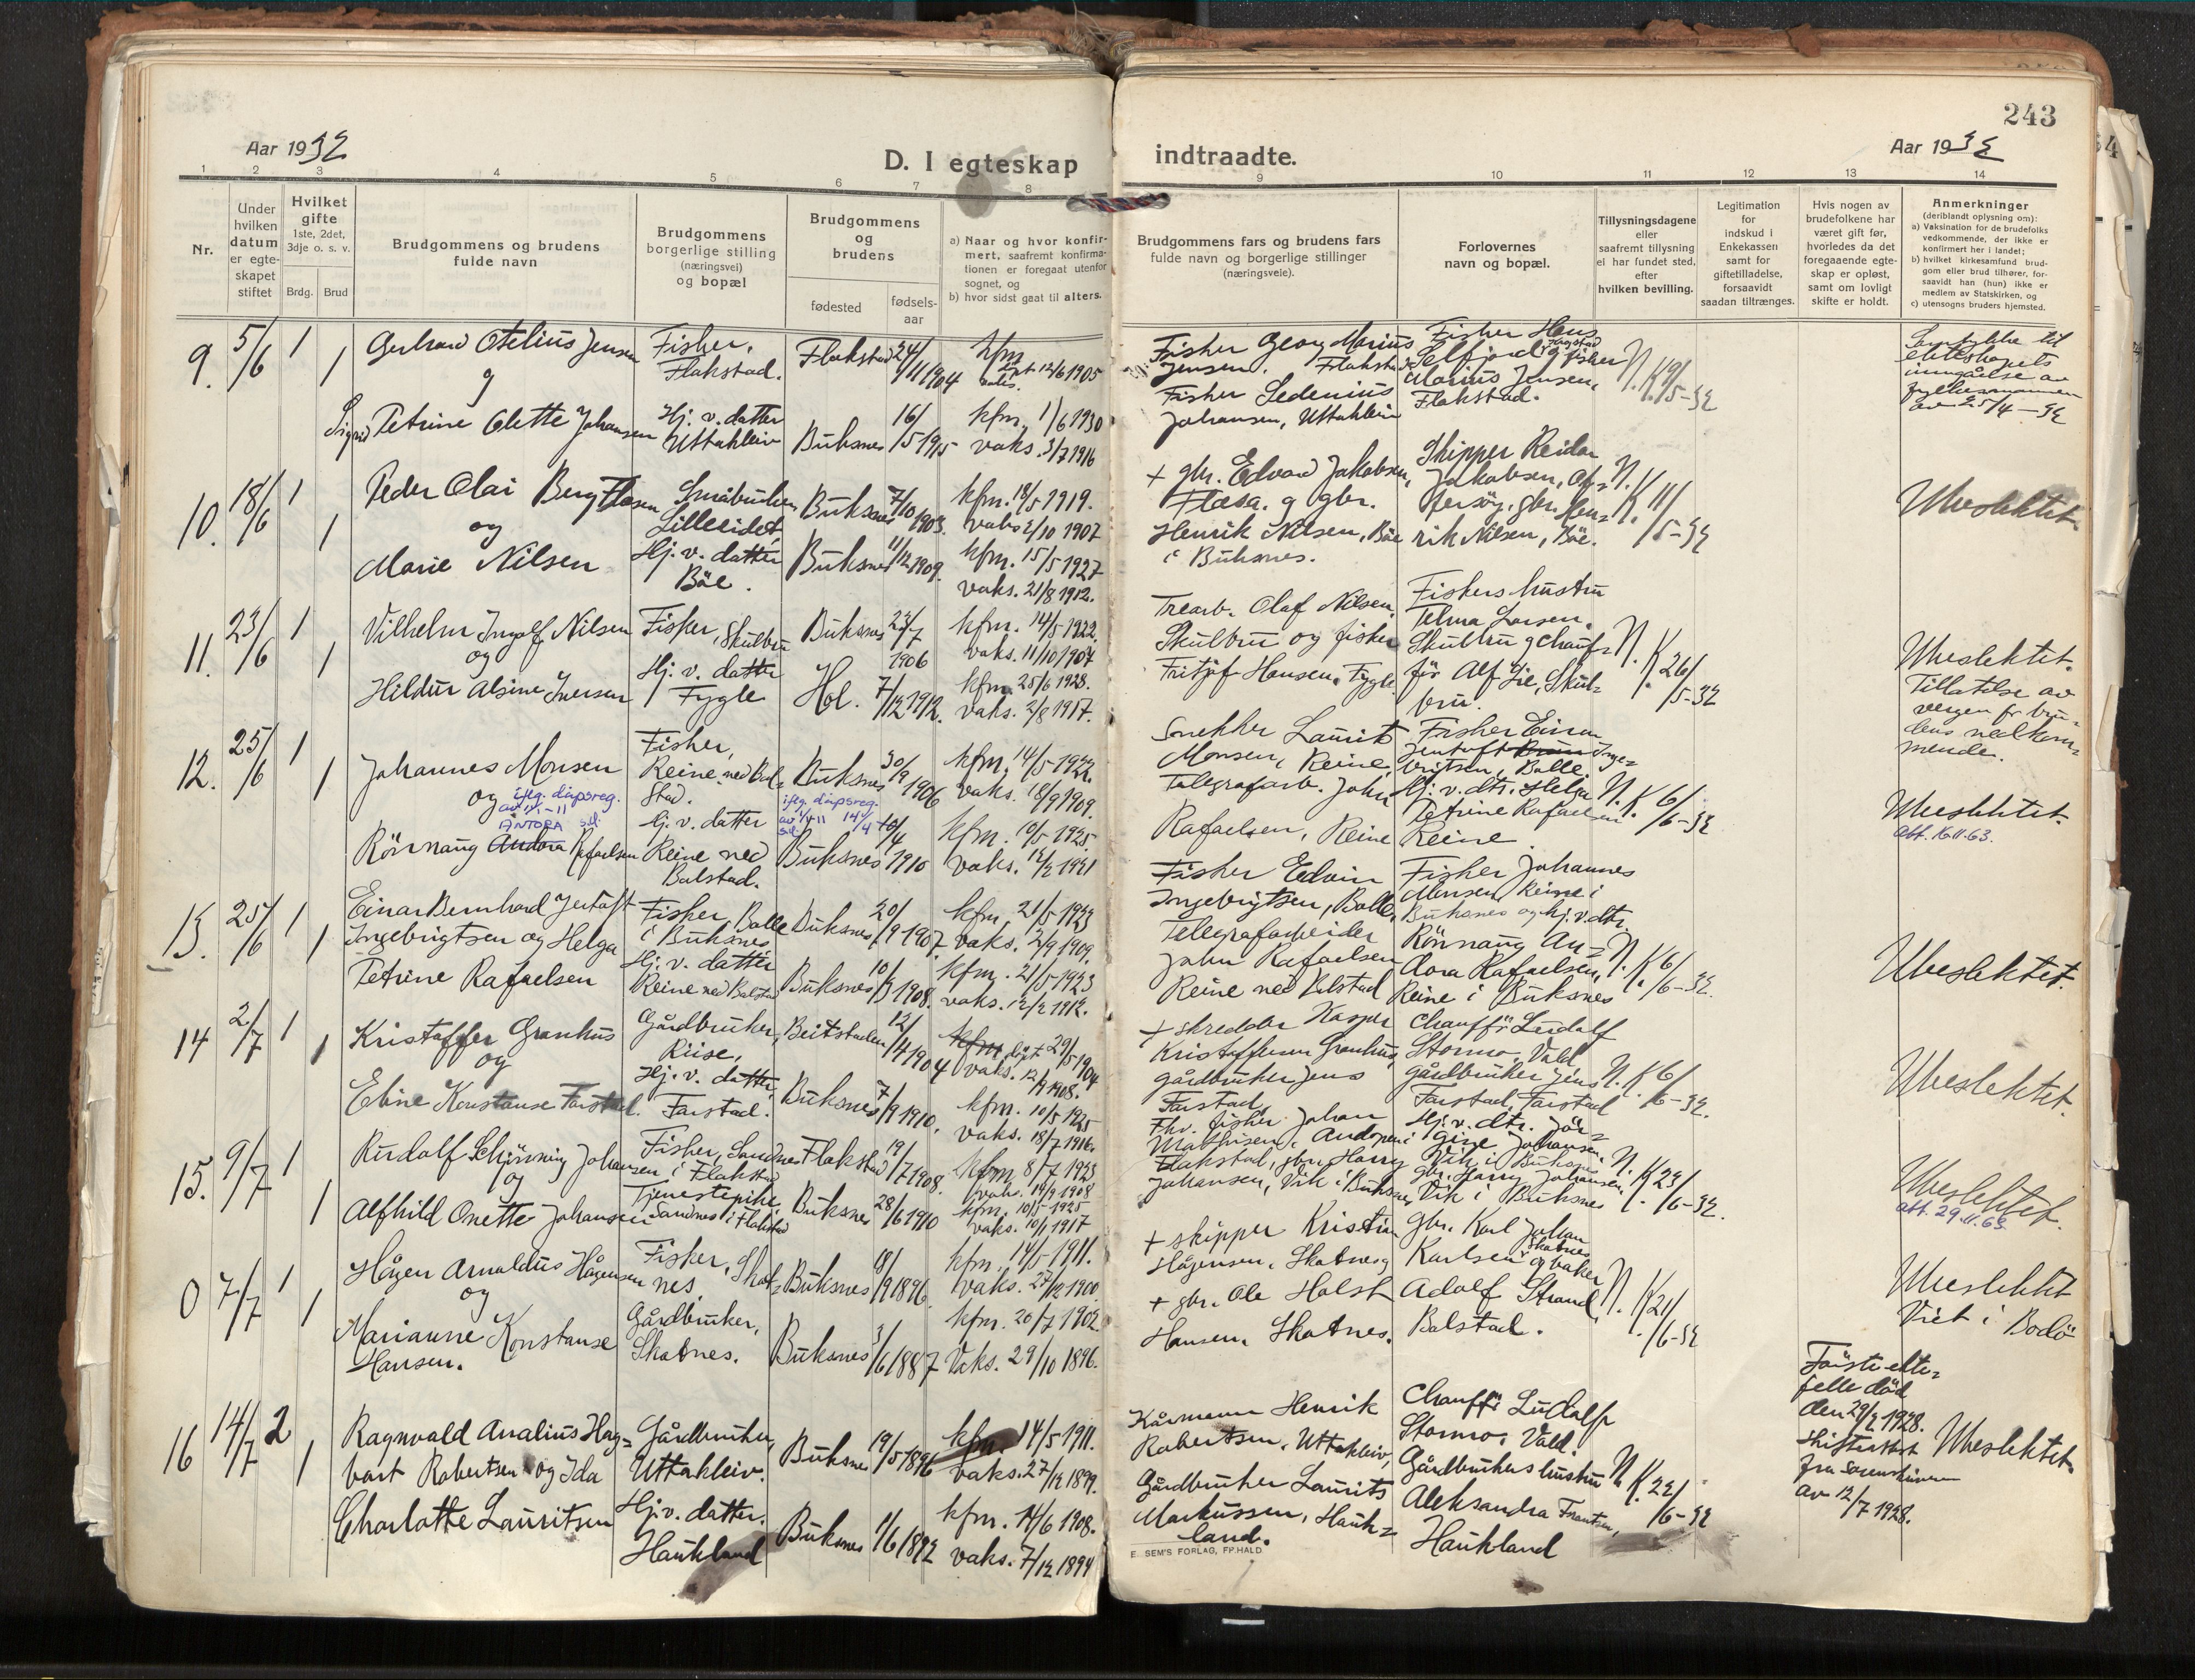 243
Aar 1932
D. I egteskap
indtraadte.
Aar 1932
1 2 3 4 5 6 7 8 9 10 11 12 13 14
Nr.
Under hvilken datum er egteskapet stiftet
Hvilket gifte
1ste, 2det, 3dje o. s. v.
Brdg. Brud
Brudgommens og brudens fulde navn
Brudgommens borgerlige stilling (næringsvei) og bopæl
Brudgommens og brudens
fødested
fødsels-aar
a) Naar og hvor konfirmert, saafremt konfirmationen er foregaat utenfor sognet, og
b) hvor sidst gaat til alters.
Brudgommens fars og brudens fars fulde navn og borgerlige stillinger (næringsveie).
Forlovernes navn og bopæl.
Tillysningsdagene eller saafremt tillysning ei har fundet sted, efter hvilken bevilling.
Legitimation for indskud i Enkekassen samt for giftetilladelse, forsaavidt saadan tiltrænges.
Hvis nogen av brudefolkene har været gift før, hvorledes da det foregaaende egteskap er opløst, samt om lovligt skifte er holdt.
Anmerkninger
(deriblandt oplysning om):
a) Vaksination for de brudefolks vedkommende, der ikke er konfirmert her i landet;
b) hvilket kirkesamfund brudgom eller brud tilhører, forsaavidt han (hun) ikke er medlem av Statskirken, og
c) utensogns bruders hjemsted.
9. 5/6 1 1
Gerhard Otelius Jensen
og
Sigrid Petrine Olette Johansen
Fisker,
Flakstad.
Hj. v. datter
Uttakleiv
Flakstad 24/11 1904
Buksnes 16/5 1915
kfm.
døpt 12/6 1905
kfm. 1/6 1930
vaks. 3/7 1916
Fisker Georg Marius
Jensen, Flakstad
Fisker Sedenius
Johansen, Uttakleiv
Fisker Hans
Selfjord, og fisker
Marius Jensen,
Flakstad.
N. K. 9/5-32
Samtykke til
ekteskapets
inngåelse av
fylkesmannen
av 25/4-32
10. 18/6 1 1
Peder Olai Berg Flæsen
og
Marie Nilsen
Småbruker
Lilleeidet,
Hj. v. datter
Böe.
Buksnes 7/10 1903.
Buksnes 11/12 1909.
kfm. 18/5 1919.
vaks 2/10 1907
kfm. 15/5 1927
vaks. 21/8 1912.
+ gbr. Edvard Jakobsen,
Flæsa. og gbr.
Henrik Nilsen, Böe
i Buksnes.
Skipper Reidar
Jakobsen, Of=
fersöy, gbr. Hen=
rik Nilsen, Böe.
N. K. 11/5-32
Ubeslektet.
11. 23/6 1 1
Vilhelm Ingolf Nilsen
og
Hildur Alsine Iversen
Fisker, Skulbru
Hj. v. datter
Fygle
Buksnes 23/7 1906
Hol. 7/12 1912.
kfm. 14/5 1922.
vaks. 11/10 1907
kfm. 25/6 1928.
vaks. 2/8 1917.
Trearb. Olaf Nilsen,
Skulbru og fisker
Fritjof Hansen, Fygle
Fiskers hustru
Telma Larsen,
Skulbru og chauf=
för Alf Lie, Skul=
bru.
N. K. 26/5-32
Ubeslektet.
Tillatelse av
vergen for bru=
dens vedkom=
mende.
12. 25/6 1 1
Johannes Monsen
og
iflg. dåpsreg.
ANTORA
Rönnaug Andora Rafaelsen
Fisker,
Reine ved Bal=
stad.
Hj. v. datter
Reine ved
Balstad.
Buksnes 30/9 1906
iflg. dåpsreg.
Buksnes 10/4 1910
kfm. 14/5 1922.
vaks. 18/9 1909.
kfm. 10/5 1925.
vaks. 12/2 1921
Snekker Laurits
Monsen, Reine,
Telegrafarb. John
Rafaelsen, Reine
Fisker Einar
Jentoft Inge=
brigtsen, Balle.
Hj. v. dtr. Helga
Petrine Rafaelsen
Reine.
N. K. 6/6-32
Ubeslektet.
att. 16.11.63.
13. 25/6 1 1
Einar Bernhard Jentoft
Ingebrigtsen og Helga
Petrine Rafaelsen
Fisker, Balle
i Buksnes
Hj. v. datter
Reine ved Balstad
Buksnes 20/9 1907.
Buksnes 1908.
kfm. 21/5 1923
vaks. 2/9 1909.
kfm. 21/5 1923
vaks. 12/2 1912.
Fisker Edvin
Ingebrigtsen, Balle,
Telegrafarbeider
John Rafaelsen
Reine ved Balstad
Fisker Johannes
Monsen, Reine i
Buksnes og hj. v. dtr.
Rönnaug An=
dora Rafaelsen,
Reine i Buksnes
N. K. 6/6-32.
Ubeslektet.
14 2/7 1 1
Kristoffer Granhus
og
Eline Konstanse Farstad.
Gårdbruker,
Riise,
Hj. v. datter,
Farstad.
Beitstaden 12/4 1904
Buksnes 7/9 1910.
kfm döpt 29/5 1904
vaks. 12/9 1908.
kfm. 10/5 1925
vaks. 18/7 1916.
+ skredder Kasper
Kristoffersen Granhus,
gårdbruker Jens
Farstad,
Chaufför Ludolf
Stormo, Vold.
gårdbruker Jens
Farstad, Farstad
N. K. 6/6-32.
Ubeslektet.
15. 9/7 1 1
Rudolf Schjönning Johansen
og
Alfhild Onette Johansen
Fisker, Sandnes
i Flakstad
Tjenestepike,
Sandnes i Flakstad
Flakstad 19/7 1908.
Buksnes 28/6 1910
kfm 8/7 1923
vaks. 19/9 1908
kfm. 10/5 1925
vaks. 10/1 1917
Fhv. fisker Johan
Mathisen, Andopen i
Flakstad, gbr. Harry
Johansen, Vik i Buksnes
Hj. v. dtr. Jör=
gine Johansen,
Vik i Buksnes
gbr. Harry Johansen,
Vik i Buksnes
N. K. 23/6-32.
Ubeslektet.
att. 29.11.63.
0 7/7 1 1
Hågen Arnoldus Hågensen
og
Marianne Konstanse
Hansen.
Fisker, Skot=
nes.
Gårdbruker,
Skotnes.
Buksnes 18/9 1896.
Buksnes 3/6 1887
kfm. 14/5 1911.
vaks. 27/12 1900.
kfm. 20/7 1902
Vaks. 29/10 1896.
+ skipper Kristian
Hågensen, Skotnes og
+ gbr. Ole Holst
Hansen, Skotnes.
gbr. Karl Johan
Karlsen, Skotnes og baker
Adolf Strand,
Balstad.
N. K. 21/6-32
Ubeslektet
Viet i Bodö
16 14/7 2 1
Ragnvald Analius Hag=
bart Robertsen og Ida
Charlotte Lauritsen
Gårdbruker,
Uttakleiv.
Hj. v. datter.
Haukland
Buksnes 19/5 1896
Buksnes 1/6 1892
kfm. 14/5 1911.
vaks. 27/12 1899.
kfm. 14/6 1908.
vaks. 7/12 1894
Kårmann Henrik
Robertsen, Uttakleiv,
Gårdbruker Laurits
Markussen, Hauk=
land.
Chaufför Ludolf
Stormo, Vold.
Gårdbrukers hustru
Aleksandra Frantsen,
Haukland
N. K. 22/6-32
Förste ekte=
felle död
den 29/2 1928.
Skifteattest
fra sorenskriveren
av 12/7 1928.
Ubeslektet.
E. SEM'S FORLAG, FR.HALD